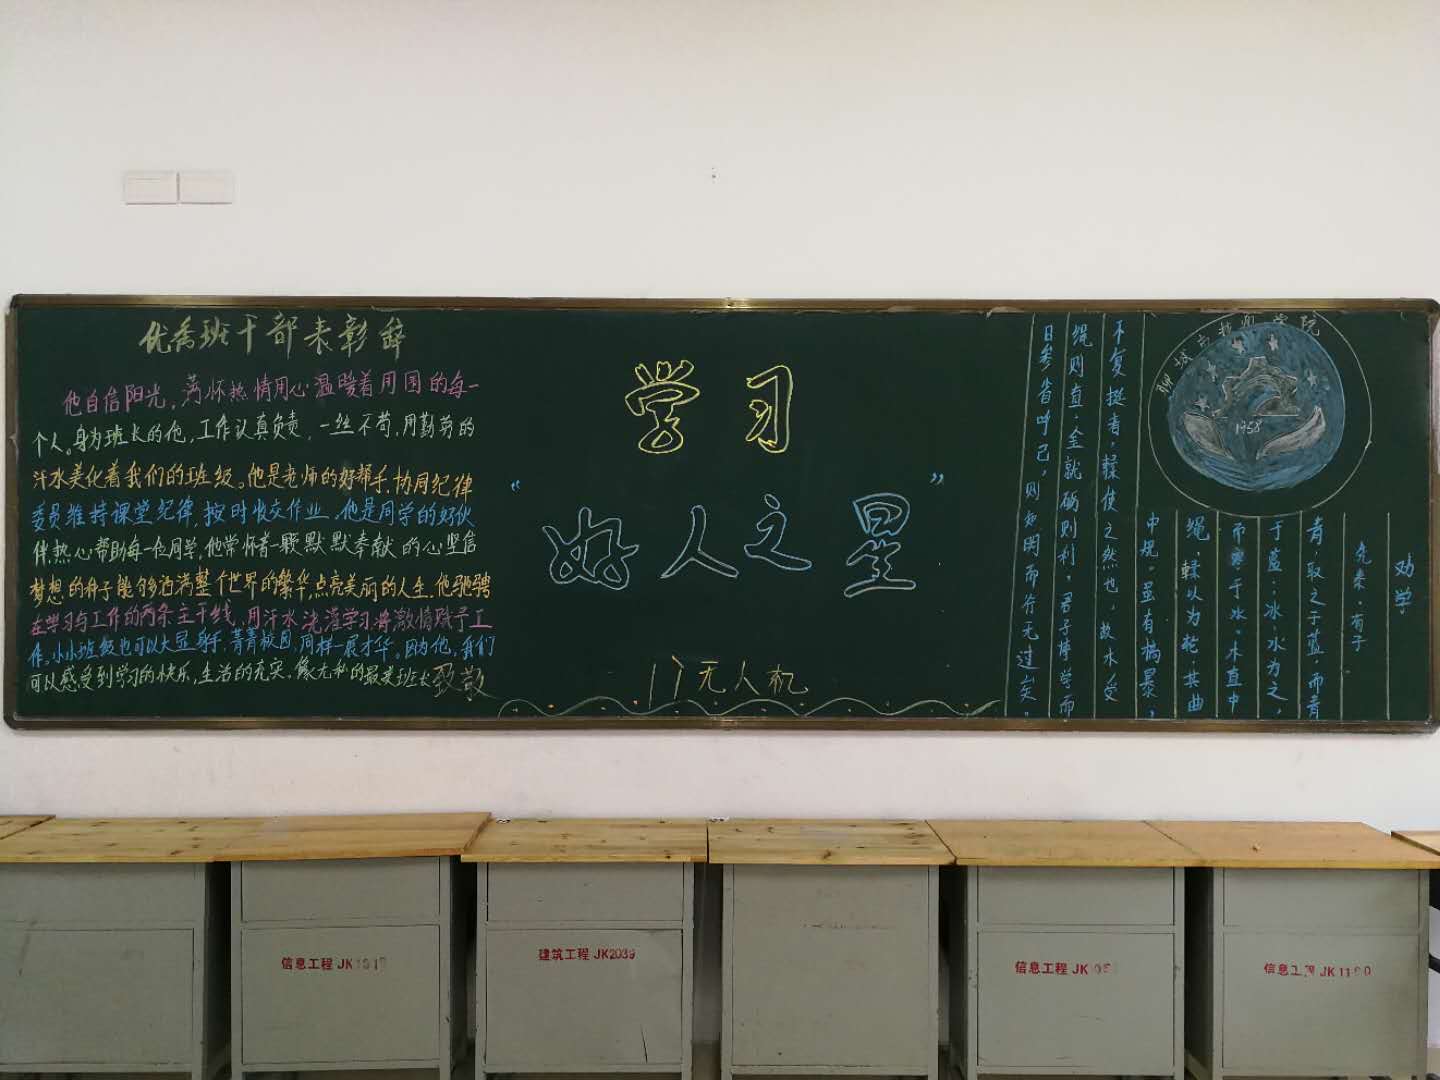 优秀班干部表彰辞
他自信阳光，满怀热情用心温暖着周围的每一
个人。身为班长的他，工作认真负责，一丝不苟，用勤劳的
汗水美化着我们的班级。他是老师的好帮手，协同纪律
委员维持课堂纪律，按时收交作业。他是同学的好伙
伴，热心帮助每一位同学，他常怀着一颗默默奉献的心坚信
梦想的种子能够沾满整个世界的繁华，点亮美丽的人生。他驰骋
在学习与工作的两条主干线，用汗水浇灌学习，将激情赋予工
作。小小班级也可以大显身手，菁菁校园，同样一展才华。因为他，我们
可以感受到学习的快乐，生活的充实。像无私的最美班长致敬
学习
“好人之星”
17无人机
聊城市技师学院
1958
劝学
先秦·荀子
青，取之于蓝，而青
于蓝；冰，水为之，
而寒于冰。木直中
绳，輮以为轮，其曲
中规。虽有槁暴，
不复挺者，輮使之然也，故木受
绳则直，金就砺则利，君子博学而
日参省乎己，则知明而行无过矣。
信息工程 JK
建筑工程 JK2039
信息工程 JK
信息工程 JK